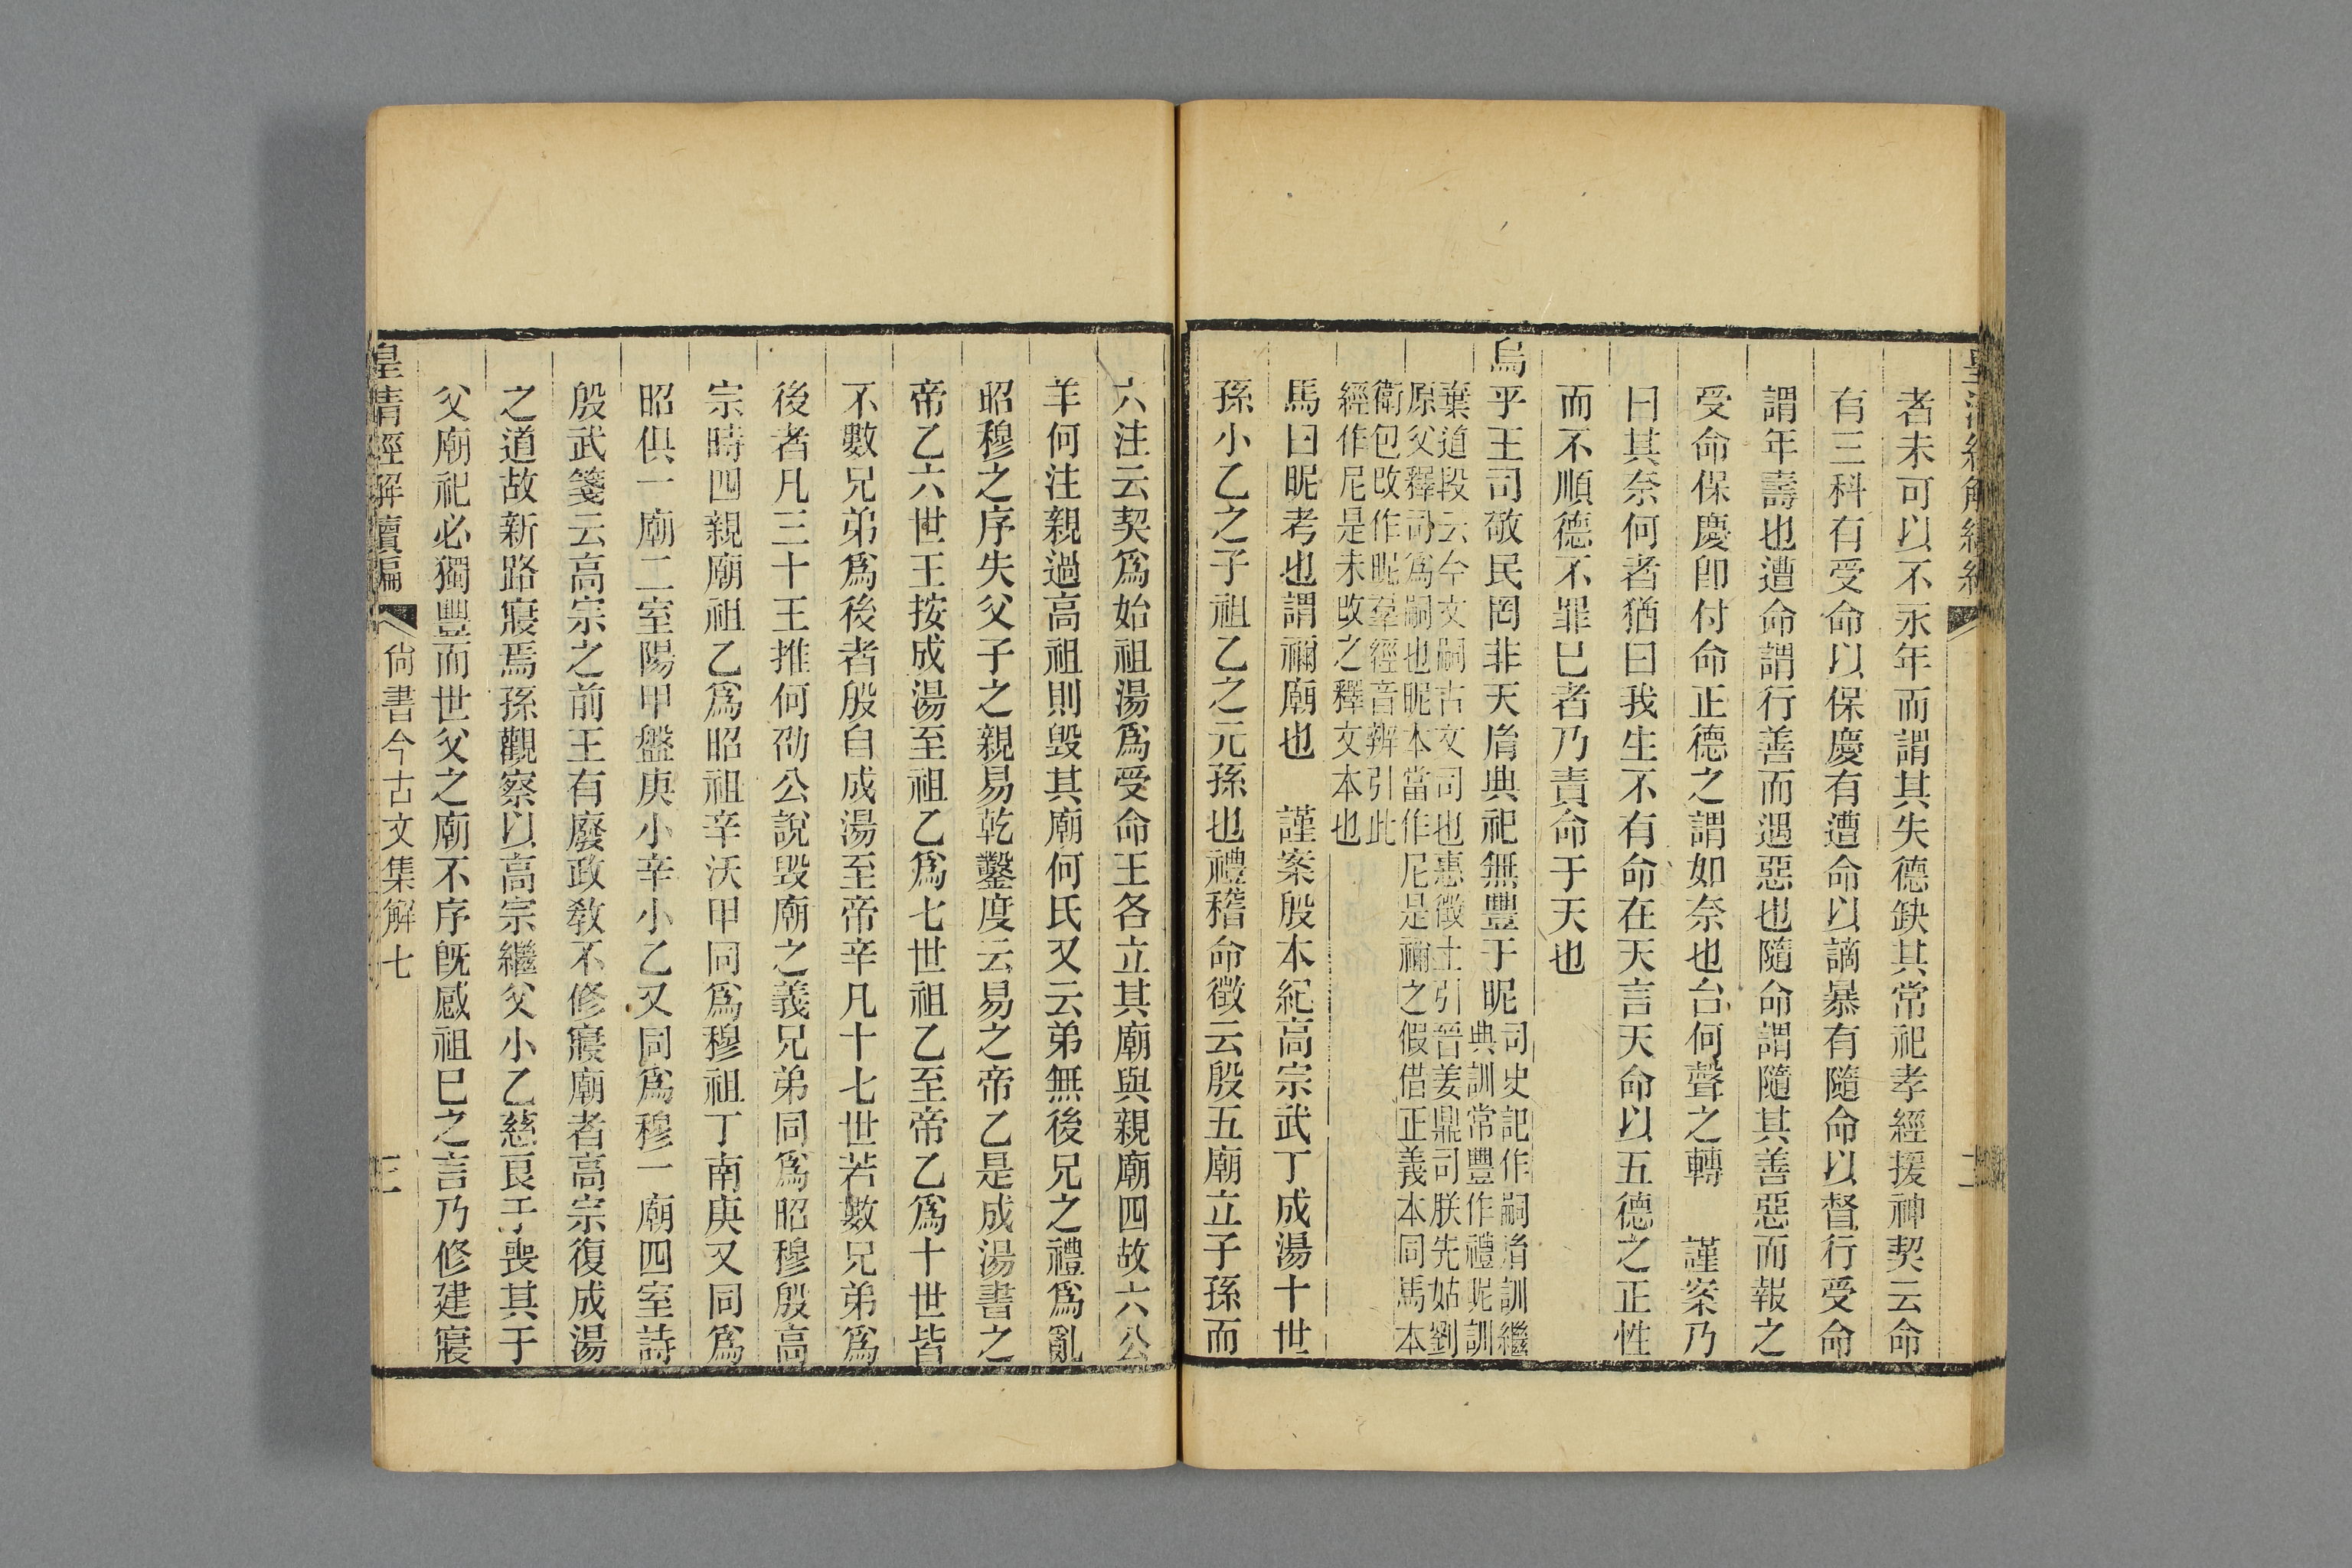 者未可以不永年而謂其失德缺其常祀孝經援神契云命
有三科有受命以保慶有遭命以謫暴有隨命以督行受命
謂年壽也遭命謂行善而遇惡也隨命謂隨其善惡而報之
受命保慶卽付命正德之謂如奈也台何聲之轉　謹案乃
曰其奈何者猶曰我生不有命在天言天命以五德之正性
而不順德不罪已者乃責命于天也
烏乎王司敬民罔非天胤典祀無豐于昵
司史記作嗣胤訓繼
典訓常豐作禮昵訓
棄道段云今文嗣古文司也惠徵士引晉姜鼎司朕先姑劉
原父釋司爲嗣也昵本當作尼是禰之假借正義本同馬本
衛包改作昵羣經音辨引此
經作尼是未改之釋文本也
馬曰昵考也謂禰廟也　謹案殷本紀高宗武丁成湯十世
孫小乙之子祖乙之元孫也禮稽命徵云殷五廟立子孫而
六注云契爲始祖湯爲受命王各立其廟與親廟四故六公
羊何注親過高祖則毀其廟何氏又云弟無後兄之禮爲亂
昭穆之序失父子之親易乾鑿度云易之帝乙是成湯書之
帝乙六世王按成湯至祖乙爲七世祖乙至帝乙爲十世皆
不數兄弟爲後者殷自成湯至帝辛凡十七世若數兄弟爲
後者凡三十王推何劭公說毀廟之義兄弟同爲昭穆殷高
宗時四親廟祖乙爲昭祖辛沃甲同爲穆祖丁南庚又同爲
昭俱一廟二室陽甲盤庚小辛小乙又同爲穆一廟四室詩
殷武箋云高宗之前王有廢政敎不修寢廟者高宗復成湯
之道故新路寢焉孫觀察以高宗繼父小乙慈良于喪其于
父廟祀必獨豐而世父之廟不序旣感祖巳之言乃修建寢
皇清經解續編
尙書今古文集解七
三